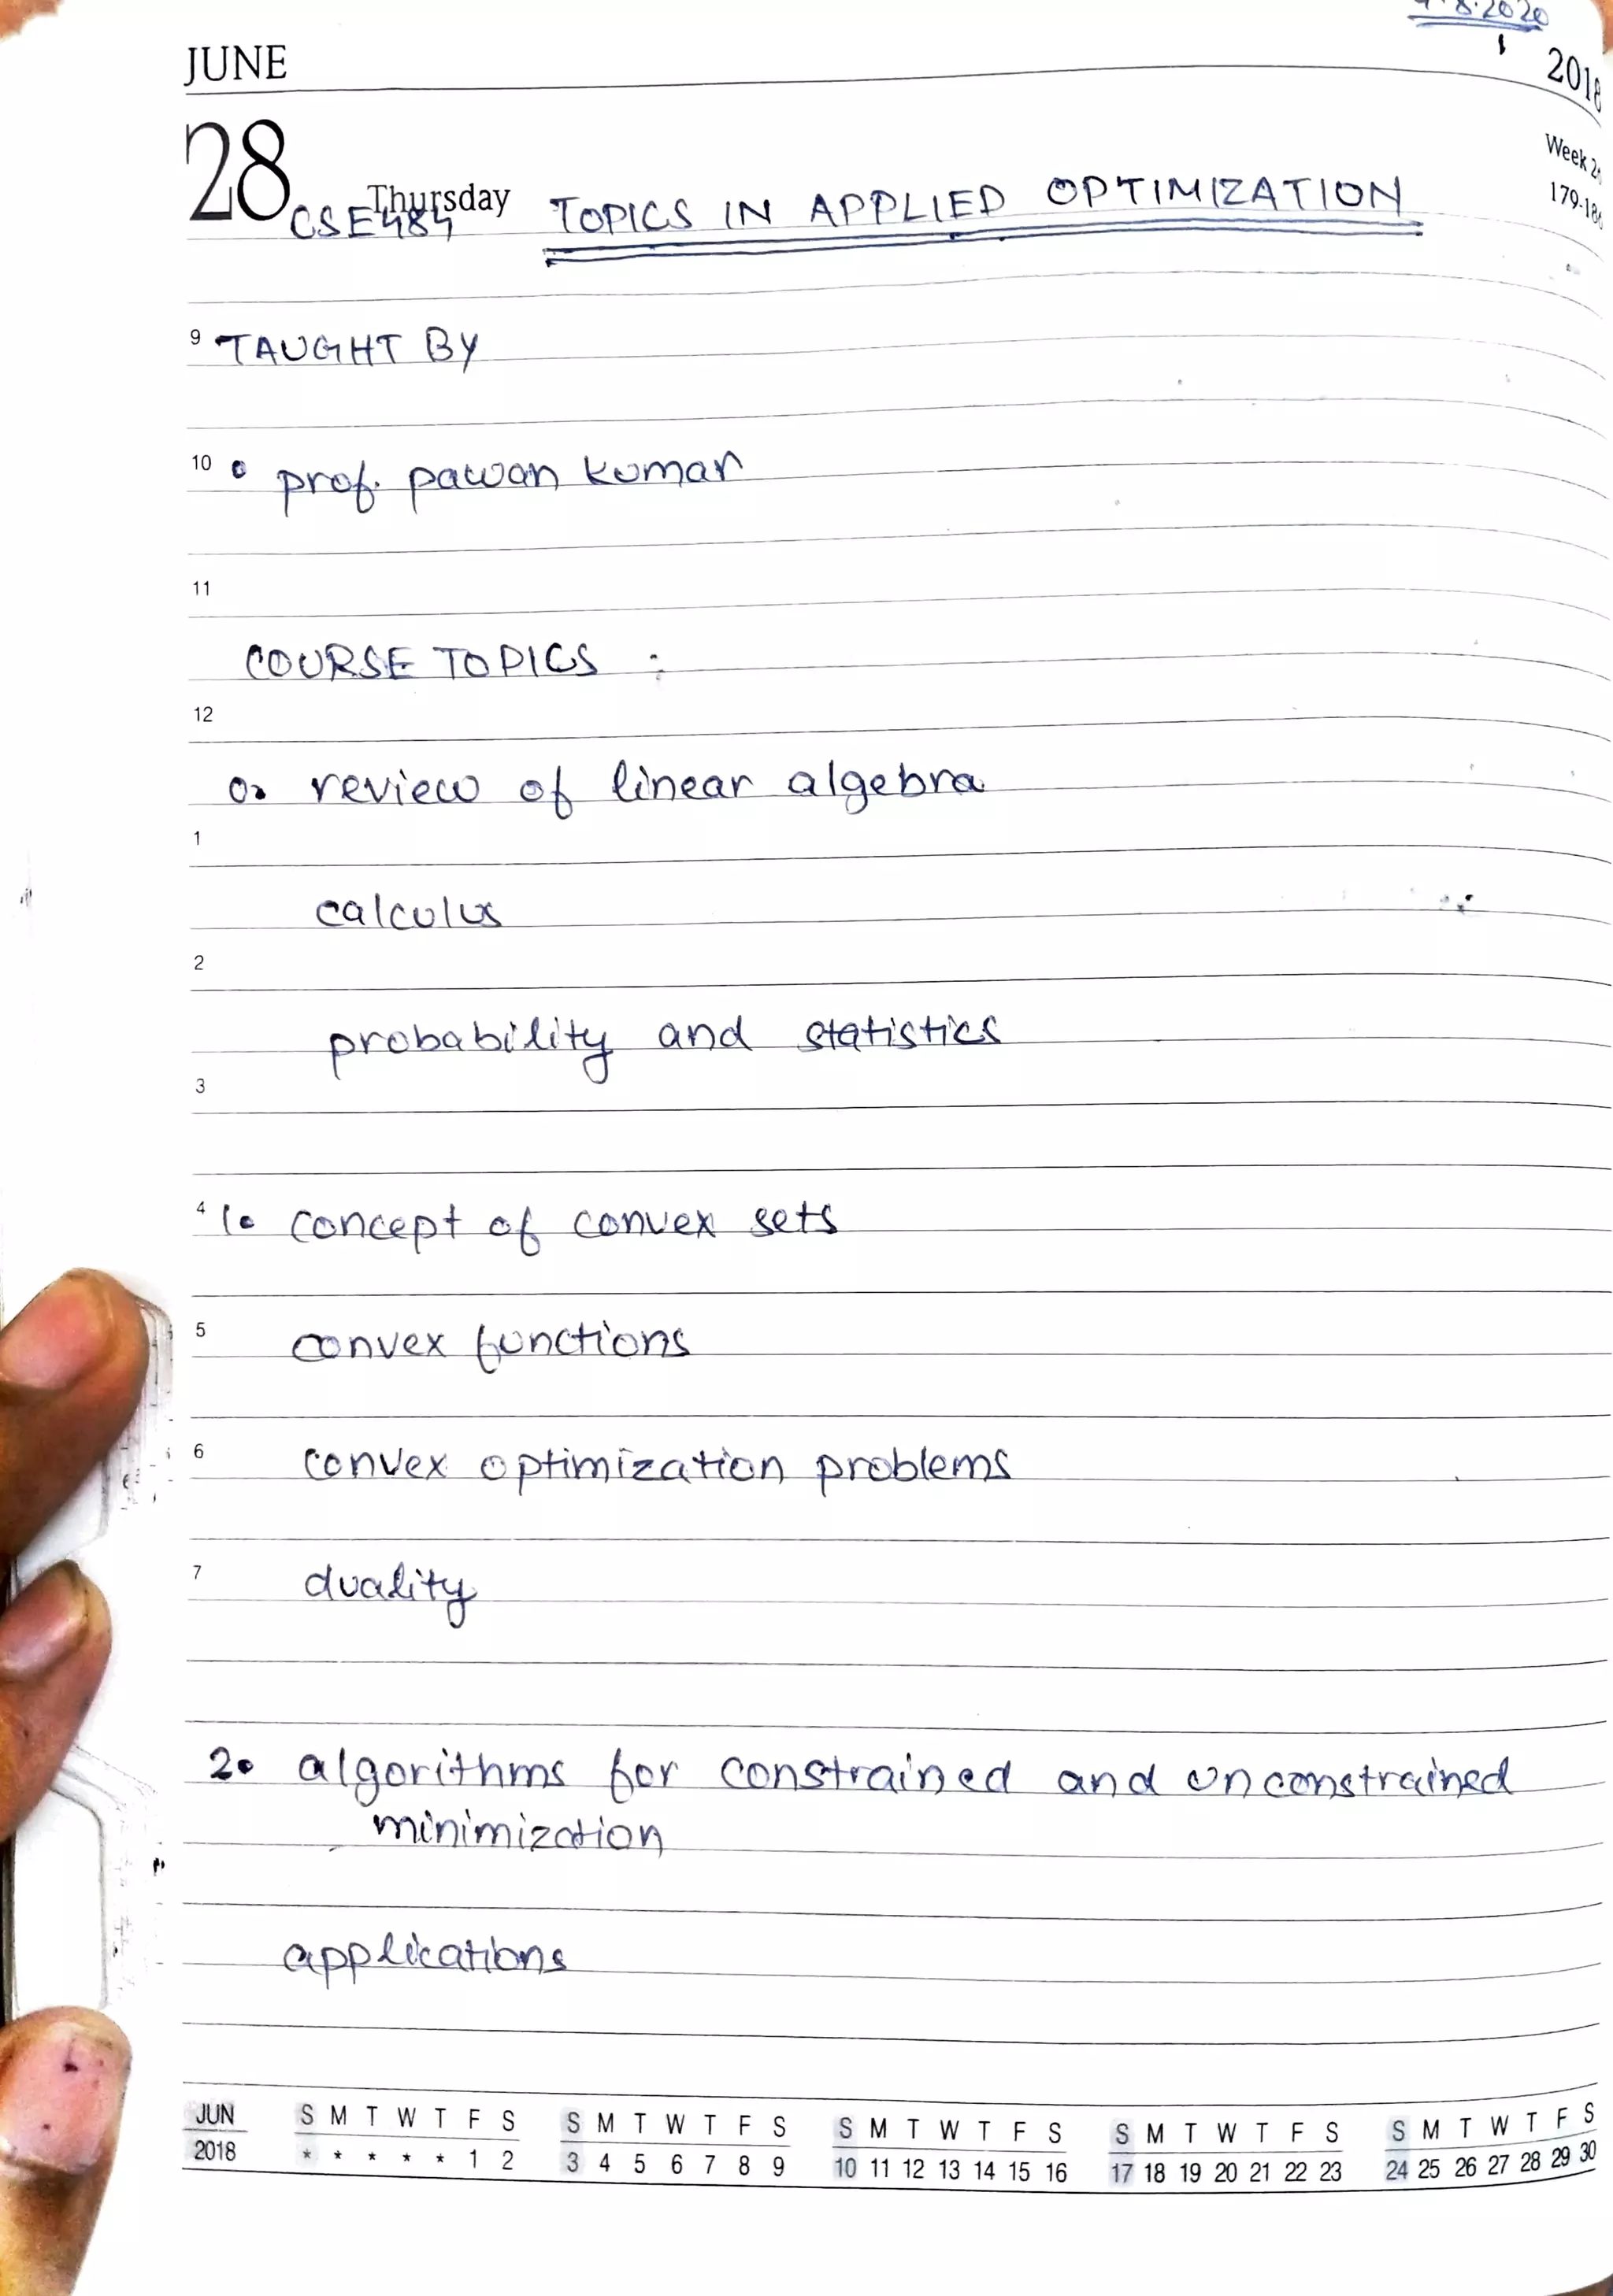 8.2020
JUNE
2018
28
Thursday
Week
CSE484 TOPICS IN APPLIED OPTIMIZATION
9 TAUGHT BY
10 • prof. pawan kumar
11
COURSE TOPICS :
12
0. review of linear algebra
1
calculus
2
probability and statistics
3
4 1. concept of convex sets
5 convex functions
6 convex optimization problems
7 duality
2. algorithms for constrained and unconstrained
minimization
applications
JUN S M T W T F S S M T W T F S S M T W T F S S M T W T F S S M T W T F S
2018 * * * * * 1 2 3 4 5 6 7 8 9 10 11 12 13 14 15 16 17 18 19 20 21 22 23 24 25 26 27 28 29 30